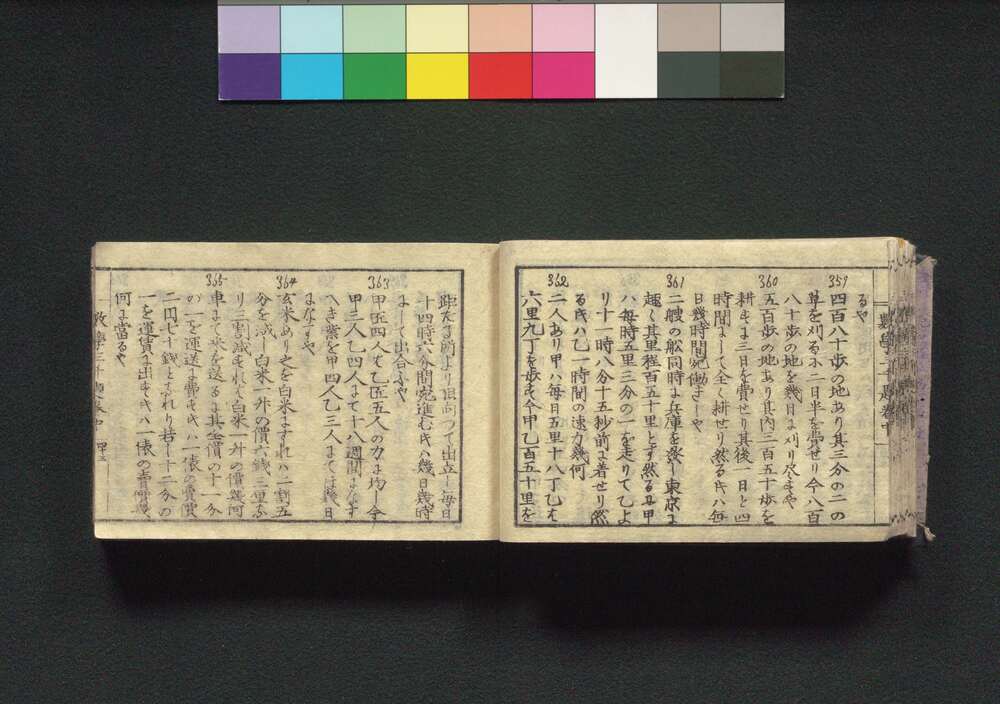 るや
359
四百八十歩の地あり其三分の二の
草を刈るホ二日半を費せり今八百
八十歩の地を幾日よ刈り尽すや
360
五百歩の地あり其内三百五十歩を
耕すよ三日を費せり其後一日と四
時間よして全く耕せり然る片ハ毎
日幾時間宛働きしや
361
二艘の舩同時よ兵庫を発し東京よ
趣く其里程百五十里とす然るよ甲
ハ毎時五里三分の一を走りて乙よ
リ十一時八分十五抄前よ着せり然
る片ハ乙一時間の速力幾何
362
二人あり甲ハ毎日五里十八丁乙は
六里九丁を歩す今甲乙百五十里を
距たる所より相向つて出立し毎日
十四時六分間宛進む片ハ幾日幾時
よして出合ふや
363
甲匠四人と乙匠五人の力は均し今
甲三人乙四人よて十八週間よなす
へき業を甲四人乙三人よては幾日
よなすや
364
玄米あり之を白米よすれハ二割五
分を減し白米一升の價六銭三厘
リ三割減すれハ白米一升の價幾何
365
車よて米を送るよ其全價の十一分
の一を運送よ費す片ハ一俵の賣
二円七十銭となれり若し十二分の
一を運賃よ出す片ハ一俵の賣價ハ
何よ當るや
数學三千題巻中 四十三